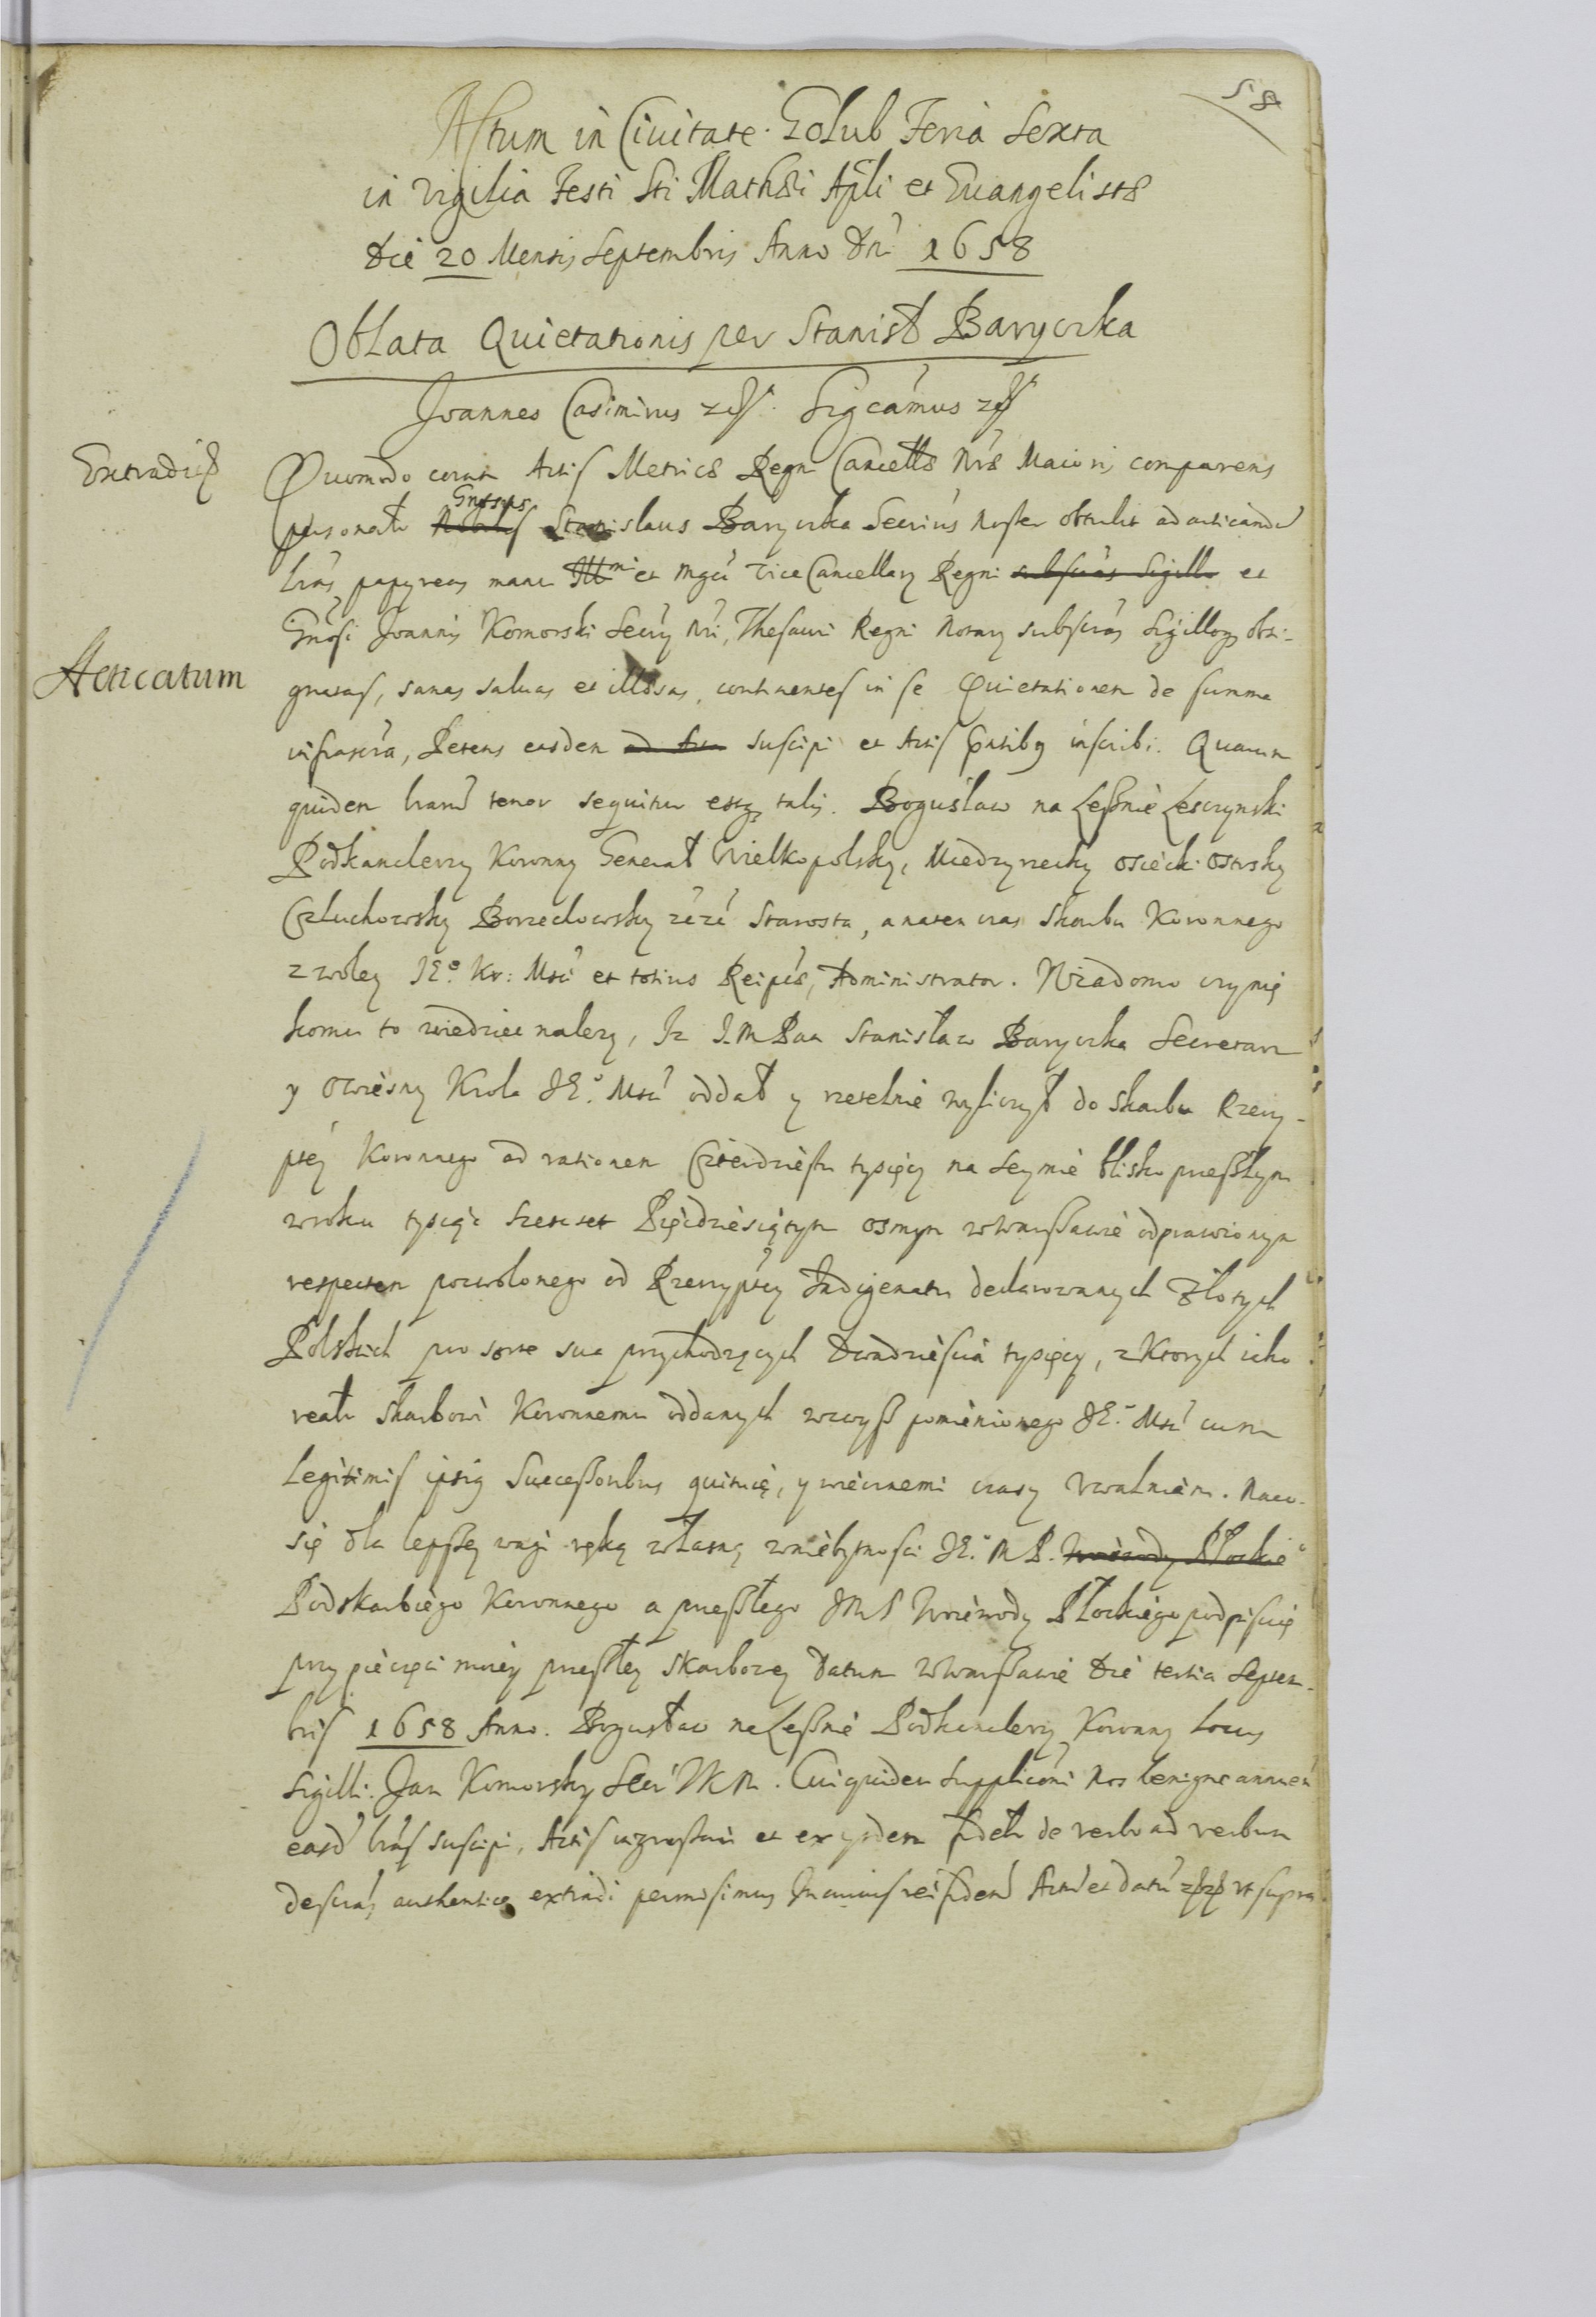 58
Actum in Ciuitate Golub Feria Sexta
in Vigilia Festi Sti Mathæi Apli et Euangelistæ
Die 20 Mensis Septembris Anno Dni 1658
Oblata Quietationis per Stanisł Baryczka
Joannes Casimirus etc. Sigcamus etc.
Extradit
Quomodo coram Actis Metricæ Regni Cancellæ Nræ Maioris comparens
personalr Nobilis Gnrosus Stanislaus Baryczka Secrius Noster obtulit ad acticandu
lras papyreas manu Illmi et Mgci Vice Cancellary Regni subscras Sigillo et
Gnrosi Joannis Komorski Secry Nri, Thesauri Regni Notary subscras Sigilloq obsi-
Acticatum
gnatas, sanas saluas et illæsas, continentes in se Quietationem de summa
infrascra, Petens easdem ad Acta suscipi et Actis pntibq inscribi. Quarum
quidem lraru tenor sequitur estq talis. Bogusław na Lesznie Lesczynski
Podkanclerzy Koronny Generał Wielkopolsky, Miedzyrzecky Osiecki Ostrsky
Człuchowsky Borzechowsky etc Starosta, a naten czas Skarbu Koronnego
z woley JEo Kr: Msci et totius Reipcæ, Administrator. Wiadomo czynię
komu to wiedziec nalezy, Iz J.M Pan Stanisław Baryczka Secretarz
y Owiesny Krola JEo Msci oddał y rzetelnie wyliczył do Skarbu Rzeczy-
ptey Koronnego ad rationem Czterdziestu tysięcy na Seymie blisko preszłym
w roku tysiąc szescset Pięcdziesiątym osmym w Warszawie odprawionym
respectem pozwolonego od Rzeczyptey Indigenatu declarowanych Złotych
Polskich pro sorte sua przychodzących Dwadziescia tysięcy, z Ktorych iako
realr Skarbowi Koronnemu oddanych wzwysz pomienionego JEo Msci cum
legitimis ipsig Successoribus quituię, y wiecznemi czasy Vwalniam. Naco
się dla lepszey wagi ręką własną w niebytnosci JEo M P. Woiewody Płockieo
Podskarbiego Koronnego a preszłego JMP Woiewody Płockiego podpisuię
przy pieczęci moiey preszłey Skarbowey Datum w Warszawie Die tertia Septem-
bris 1658 Anno. Bogusław na Lesznie Podkanclerzy Koronny Locus
Sigilli. Jan Komorsky Secr JKM. Cui quidem Suppliconi Nos benigne annuen
easd lras suscipi, Actis ingrossari et ex ysdem fidelr de verbo ad verbum
descras authentice extradi permisimus In cuius rei fidem Actu et datu ut supra